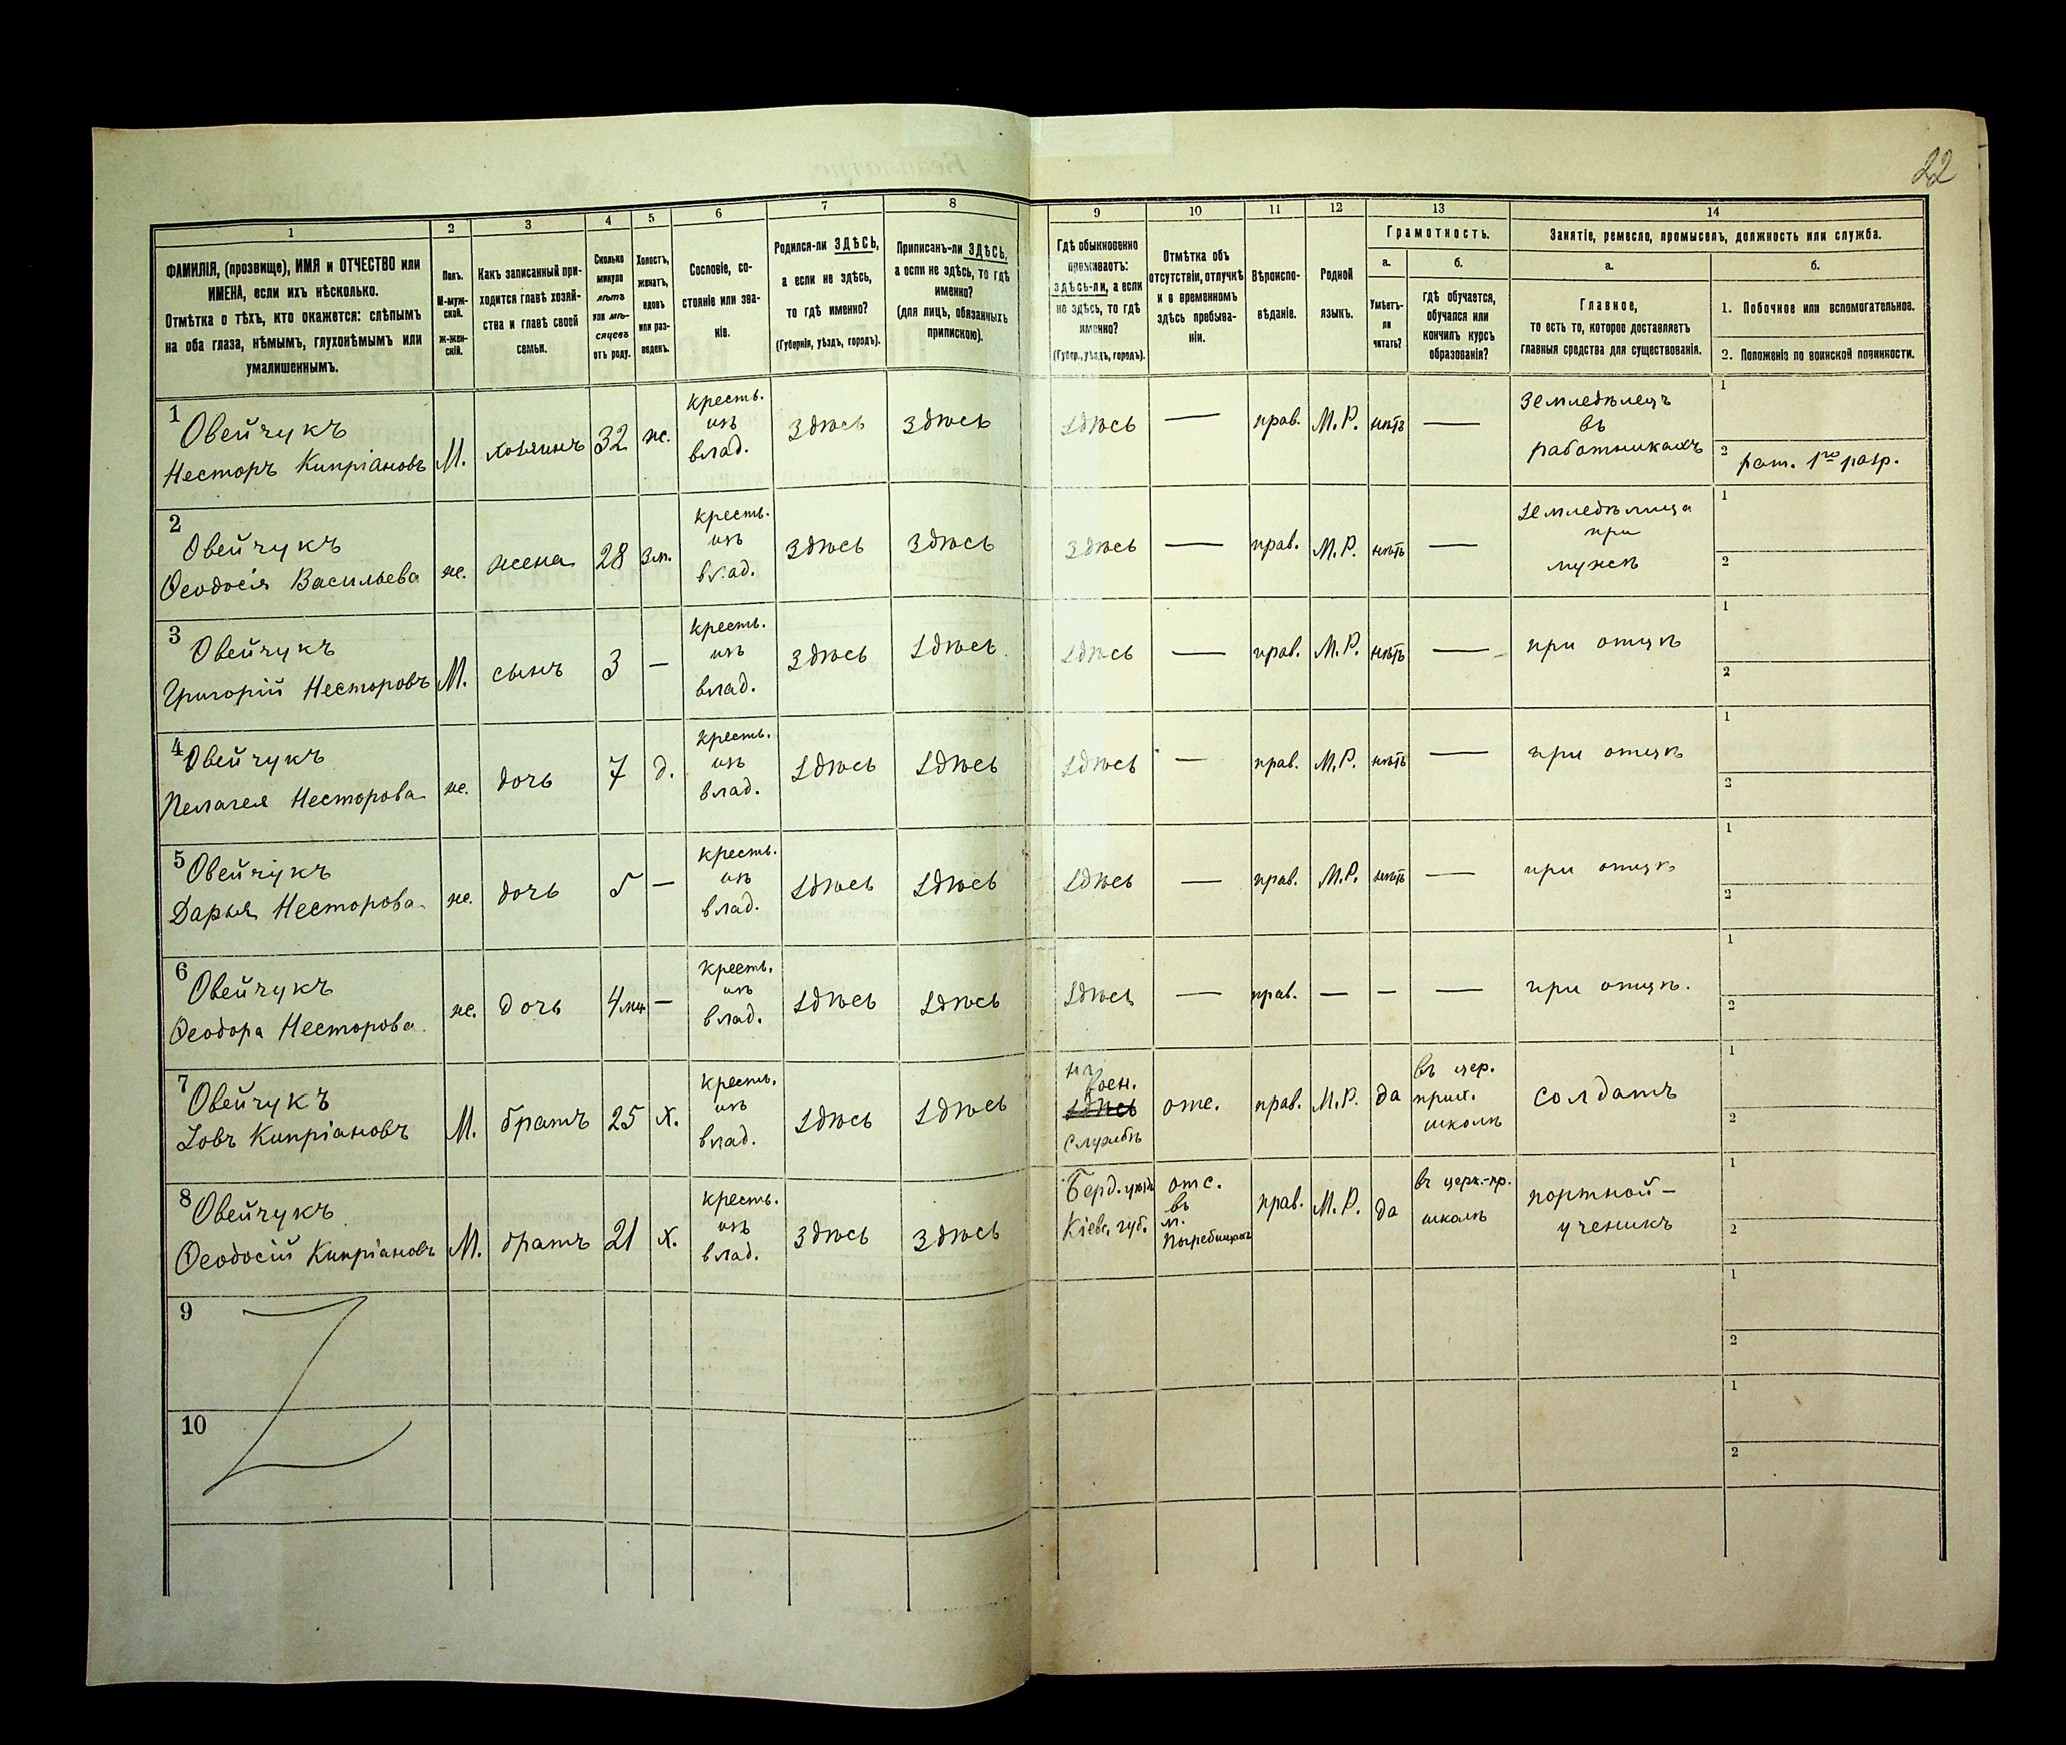 22
1
2
3
4
5
6
7
8
9
10
11
12
13
14
ФАМИЛІЯ, (прозвище), ИМЯ и ОТЧЕСТВО или
ИМЕНА, если ихъ нѣсколько.
Отмѣтка о тѣхъ, кто окажется: слѣпымъ
на оба глаза, нѣмымъ, глухонѣмымъ или
умалишеннымъ.
Полъ.
М-муж-
ской.
Ж-жен-
скій.
Какъ записанный при-
ходится главѣ хозяй-
ства и главѣ своей
семьи.
Сколько
минуло
лѣтъ
или мѣ-
сяцевъ
отъ роду.
Холостъ,
женатъ,
вдовъ
или раз-
веденъ.
Сословіе, со-
стояніе или зва-
ніе.
Родился-ли ЗДѢСЬ,
а если не здѣсь,
то гдѣ именно?
(Губернія, уѣздъ, городъ).
Приписанъ-ли ЗДѢСЬ,
а если не здѣсь, то гдѣ
именно?
(для лицъ, обязанныхъ
припискою).
Гдѣ обыкновенно
проживаетъ:
здѣсь-ли, а если
не здѣсь, то гдѣ
именно?
(Губер., уѣздъ, городъ).
Отмѣтка объ
отсутствіи, отлучкѣ
и о временномъ
здѣсь пребыва-
ніи.
Вѣроиспо-
вѣданіе.
Родной
языкъ.
Грамотность.
а.
Умѣетъ-
ли
читать?
б.
гдѣ обучается,
обучался или
кончилъ курсъ
образованія?
Занятіе, ремесло, промыселъ, должность или служба.
а.
Главное,
то есть то, которое доставляетъ
главныя средства для существованія.
б.
1. Побочное или вспомогательное.
2. Положеніе по воинской повинности.
1
Овейчукъ
Несторъ Кипріановъ
М.
хозяинъ
32
ж.
кресть.
изъ
влад.
здѣсь
здѣсь
здѣсь
—
прав.
М.Р.
нѣтъ
—
Земледѣлецъ
въ
работникахъ
1
2 рат. 1го разр.
2
Овейчукъ
Ѳеодосія Васильева
ж.
жена
28
Зм.
кресть.
изъ
влад.
здѣсь
здѣсь
здѣсь
—
прав.
М.Р.
нѣтъ
—
земледѣлица
при
мужѣ
1
2
3
Овейчукъ
Григорій Несторовъ
М.
сынъ
3
—
кресть.
изъ
влад.
здѣсь
здѣсь
здѣсь
—
прав.
М.Р.
нѣтъ
—
при отцѣ
1
2
4
Овейчукъ
Пелагея Несторова
ж.
дочь
7
д.
кресть.
изъ
влад.
здѣсь
здѣсь
здѣсь
—
прав.
М.Р.
нѣтъ
—
при отцѣ
1
2
5
Овейчукъ
Дарья Несторова
ж.
дочь
5
—
кресть.
изъ
влад.
здѣсь
здѣсь
здѣсь
—
прав.
М.Р.
нѣтъ
—
при отцѣ
1
2
6
Овейчукъ
Ѳеодора Несторова
ж.
дочь
4 мц
—
кресть.
изъ
влад.
здѣсь
здѣсь
здѣсь
—
прав.
—
—
—
при отцѣ.
1
2
7
Овейчукъ
Іовъ Кипріановъ
М.
братъ
25
х.
кресть.
изъ
влад.
здѣсь
здѣсь
на
воен.
здѣсь
службѣ
отс.
прав.
М.Р.
да
въ цер.
прих.
школѣ
солдатъ
1
2
8
Овейчукъ
Ѳеодосій Кипріановъ
М.
братъ
21
х.
кресть.
изъ
влад.
здѣсь
здѣсь
Берд. уѣзд
Кіевс. губ.
отс.
въ
м.
прав.
М.Р.
да
въ церк.-пр.
школѣ
портной-
ученикъ
1
2
9
1
2
10
1
2